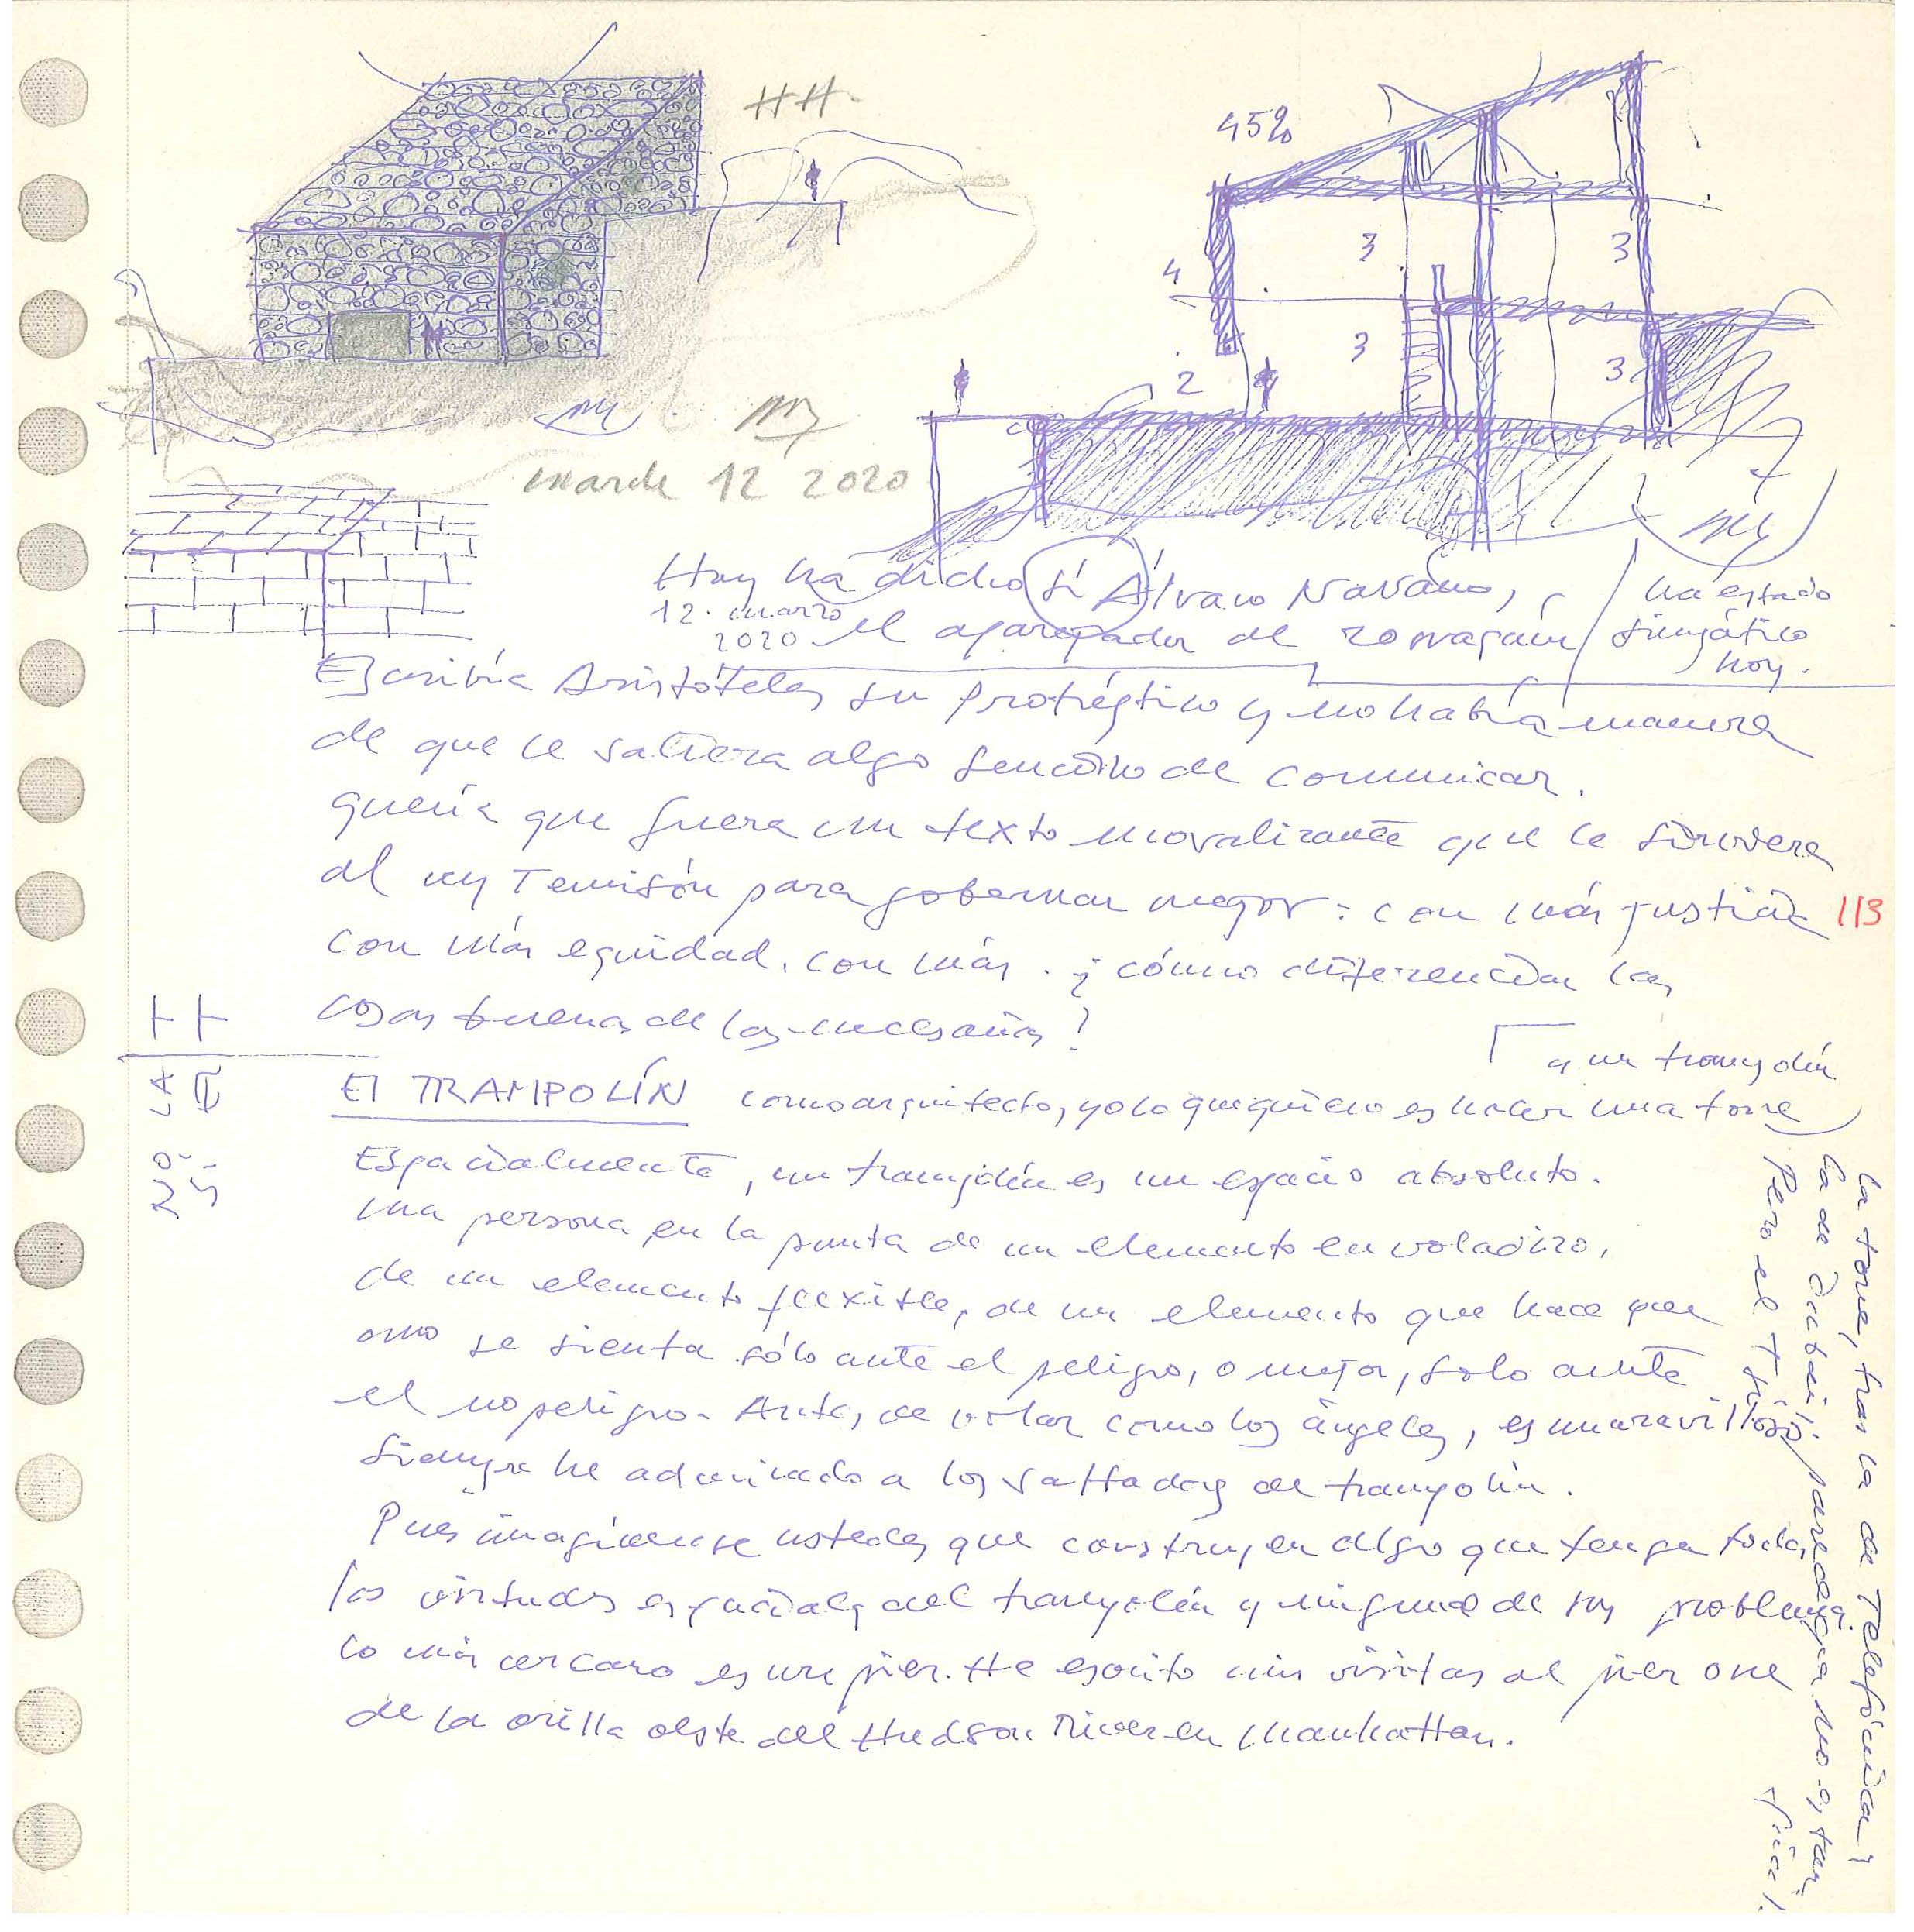 HH.
45%
3
3
4
3
3
2
march 12 2020
Hoy ha dicho sí Álvaro Navarro,
12. marzo
2020
el aparejador de
ha estado
simpático
hoy.
Escribía Aristóteles su protréptico y no había manera
de que le saliera algo sencillo de comunicar.
quería que fuera un texto moralizante que le sirviera
al rey Temisón para gobernar mejor: con más justicia
113
con más equidad. con más. ¿cómo diferenciar las
cosas buenas de las necesarias?
y un trampolín
El TRAMPOLÍN como arquitecto, yo lo que quiero es hacer una torre
Espacialmente, un trampolín es un espacio absoluto.
una persona en la punta de un elemento en voladizo,
de un elemento flexible, de un elemento que hace que
uno se sienta sólo ante el peligro, o mejor, solo ante
el no peligro. Antes, de volar como los ángeles, es maravilloso.
Siempre he admirado a los saltadores de trampolín.
Pues imagínense ustedes que construyen algo que tenga todas
las virtudes espaciales del trampolín y ninguno de sus problemas.
lo más cercano es un pier. He escrito mis visitas al pier one
de la orilla oeste del Hudson River en Manhattan.
la torre, tras la de Telefónica y
la de Dubai, parece que no es tan
Pero el